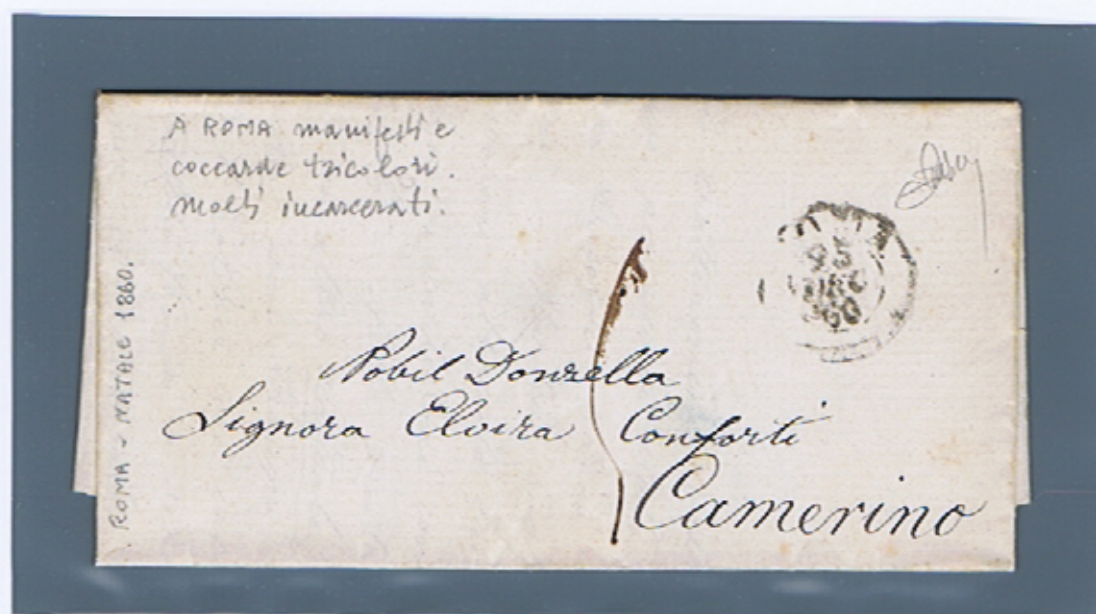 A ROMA manifesti e
coccarde tricolori.
molti incarcerati.
ROMA - NATALE 1860.
Nobil Donzella
Signora Elvira Conforti
Camerino